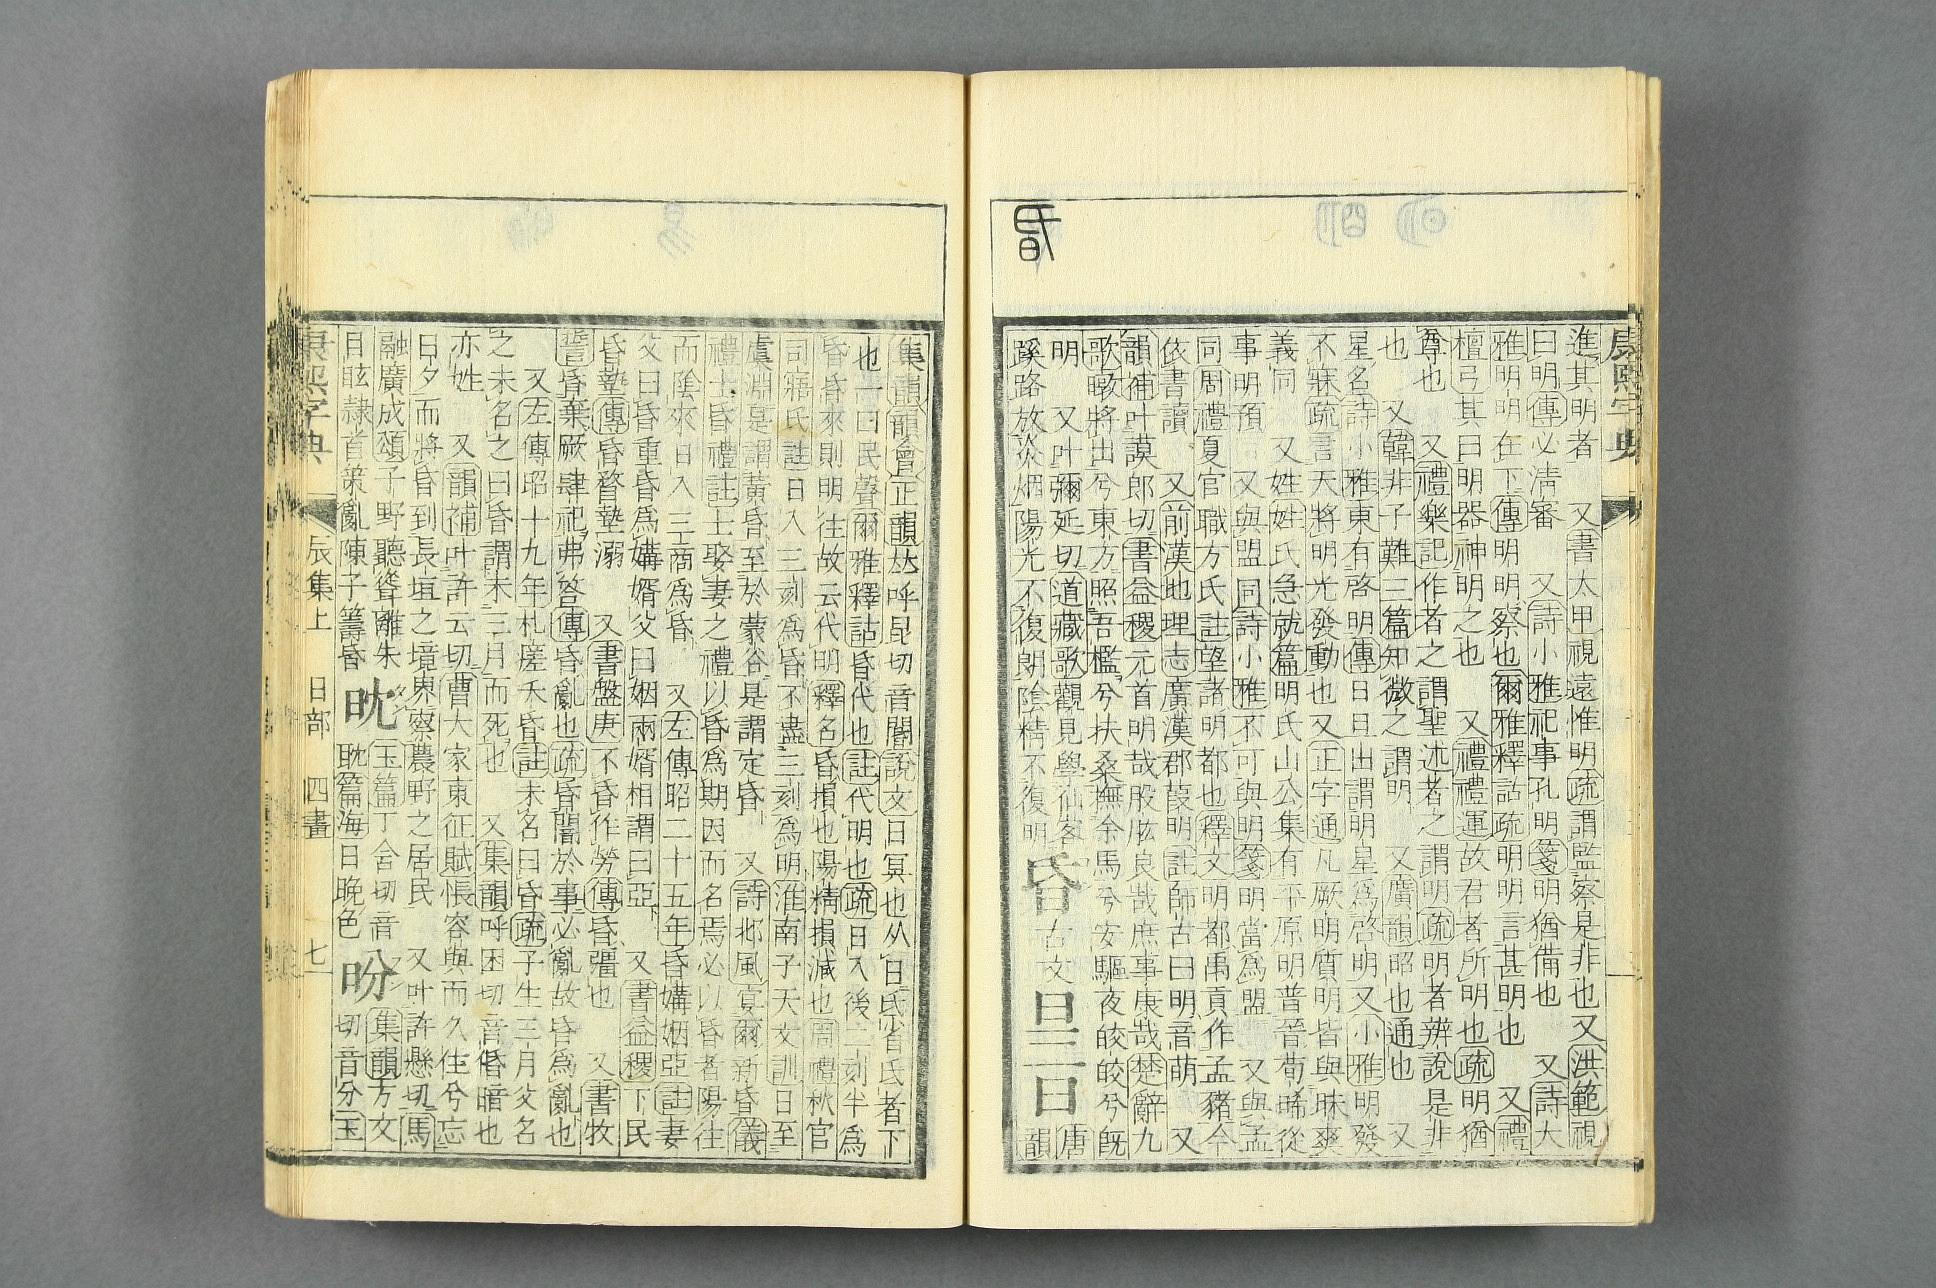 昏
康熙字典
進其明者　又書太甲視遠惟明疏謂監察是非也又洪範視
曰明傳必清審　又詩小雅祀事孔明箋明猶備也　又詩大
雅明明在下傳明明察也爾雅釋詁疏明明言甚明也　又禮
檀弓其曰明器神明之也　又禮禮運故君者所明也疏明猶
尊也　又禮樂記作者之謂聖述者之謂明疏明者辨說是非
也　又韓非子難三篇知微之謂明　又廣韻昭也通也　又
星名詩小雅東有啓明傳日旦出謂明星爲啓明又小雅明發
不寐疏言天將明光發動也又正字通凡厥明質明皆與昧爽
義同　又姓姓氏急就篇明氏山公集有平原明普晉荀晞從
事明預　又與盟同詩小雅不可與明箋明當爲盟　又與孟
同周禮夏官職方氏註望諸明都也釋文明都禹貢作孟豬今
依書讀　又前漢地理志廣漢郡葭明註師古曰明音萌　又
韻補叶謨郎切書益稷元首明哉股肱良哉庶事康哉楚辭九
歌暾將出兮東方照吾檻兮扶桑撫余馬兮安驅夜皎皎兮旣
明　又叶彌延切道藏歌觀見學仙客　唐
蹊路放炎烟陽光不復朗陰精不復明昏古文旦二日韻
集韻韻會正韻𠀤呼昆切音閽說文日冥也从日氐省氐者下
也一曰民聲爾雅釋詁昏代也註代明也疏日入後二刻半爲
昏昏來則明往故云代明釋名昏損也陽精損滅也周禮秋官
司寤氏註日入三刻爲昏不盡三刻爲明淮南子天文訓日至
虞淵是謂黃昏至於蒙谷是謂定昏　又詩邶風宴爾新昏儀
禮士昏禮註士娶妻之禮以昏爲期因而名焉必以昏者陽往
而陰來日入三商爲昏　又左傳昭二十五年昏媾姻亞註妻
父曰昏重昏爲媾壻父曰姻兩壻相謂曰亞　又書益稷下民
昏墊傳昏瞀墊溺　又書盤庚不昏作勞傳昏彊也　又書牧
誓昏棄厥肆祀弗答傳昏亂也疏昏闇於事必亂故昏爲亂也
又左傳昭十九年札瘥夭昏註未名曰昏疏子生三月父名
之未名之曰昏謂未三月而死也　又集韻呼困切音惛暗也
亦姓　又韻補叶許云切曹大家東征賦悵容與而久住兮忘
日夕而將昏到長垣之境界察農野之居民　又叶許懸切馬
融廣成頌子野聽聳離朱　玉篇丁含切音　集韻方文
目眩隷首策亂陳子籌昏眈耽篇海日晚色昐切音分玉
康熙字典　辰集上　日部　四畫　七